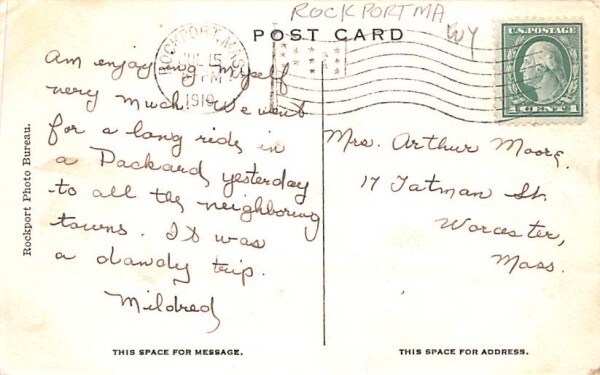 ROCKPORT MA
WY
POST CARD
ROCKPORT, MASS.
JUL 15
PM
1919
U.S. POSTAGE
1 CENT 1
Am enjoying myself
very much. We went
for a long ride in
a Packard yesterday
to all the neighboring
towns. It was
a dandy trip.
Mildred
Mrs. Arthur Moore.
17 Tatman St.
Worcester,
Mass.
Rockport Photo Bureau.
THIS SPACE FOR MESSAGE.
THIS SPACE FOR ADDRESS.